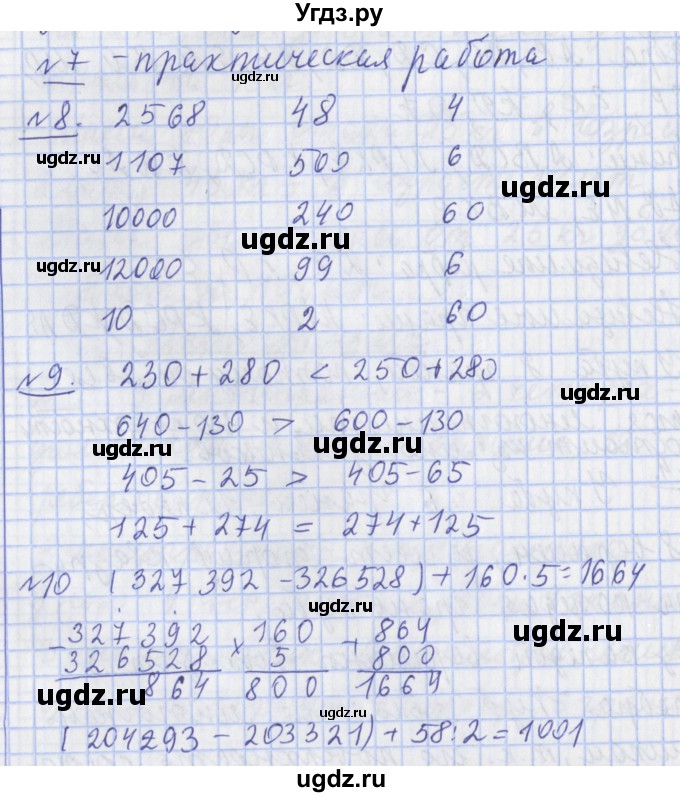 Угдз.ру
№7 - практическая работа
ugdz.ru
№8. 2568 48 4
ugdz.ru 1107 500 6
ugdz.ru
10000 240 60
ugdz.ru
ugdz.ru 12000 99 6
10 2 60
№9. 230 + 280 < 250 + 280
ugdz.ru
640 - 130 > 600 - 130
ugdz.ru ugdz.ru
405 - 25 > 405 - 65
125 + 274 = 274 + 125
№10 (327 392 - 326 528) + 160 · 5 = 1664
ugdz.ru
- 327 392 × 160 + 864
ugdz.ru
326 528 5 800
864 800 1664
ugdz.ru
ugdz.ru
(204293 - 203321) + 58 : 2 = 1001
ugdz.ru
Угдз.ру